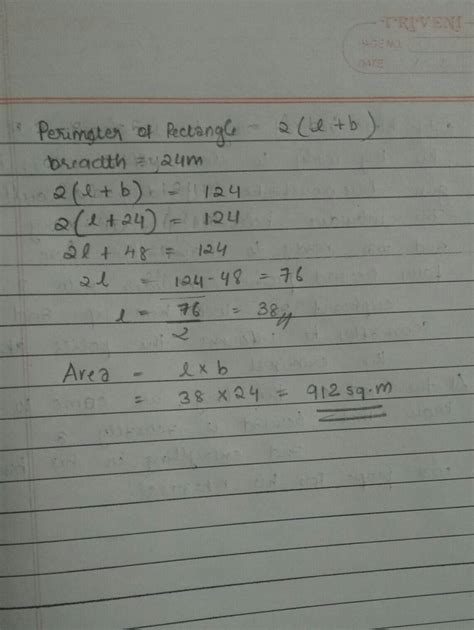 TRIVENI
Perimeter of Rectangle = 2(l+b)
breadth = 24m
2(l+b) = 124
2(l+24) = 124
2l + 48 = 124
2l = 124-48 = 76
l = 76/2 = 38
Area = l×b
= 38 × 24 = 912 sq.m